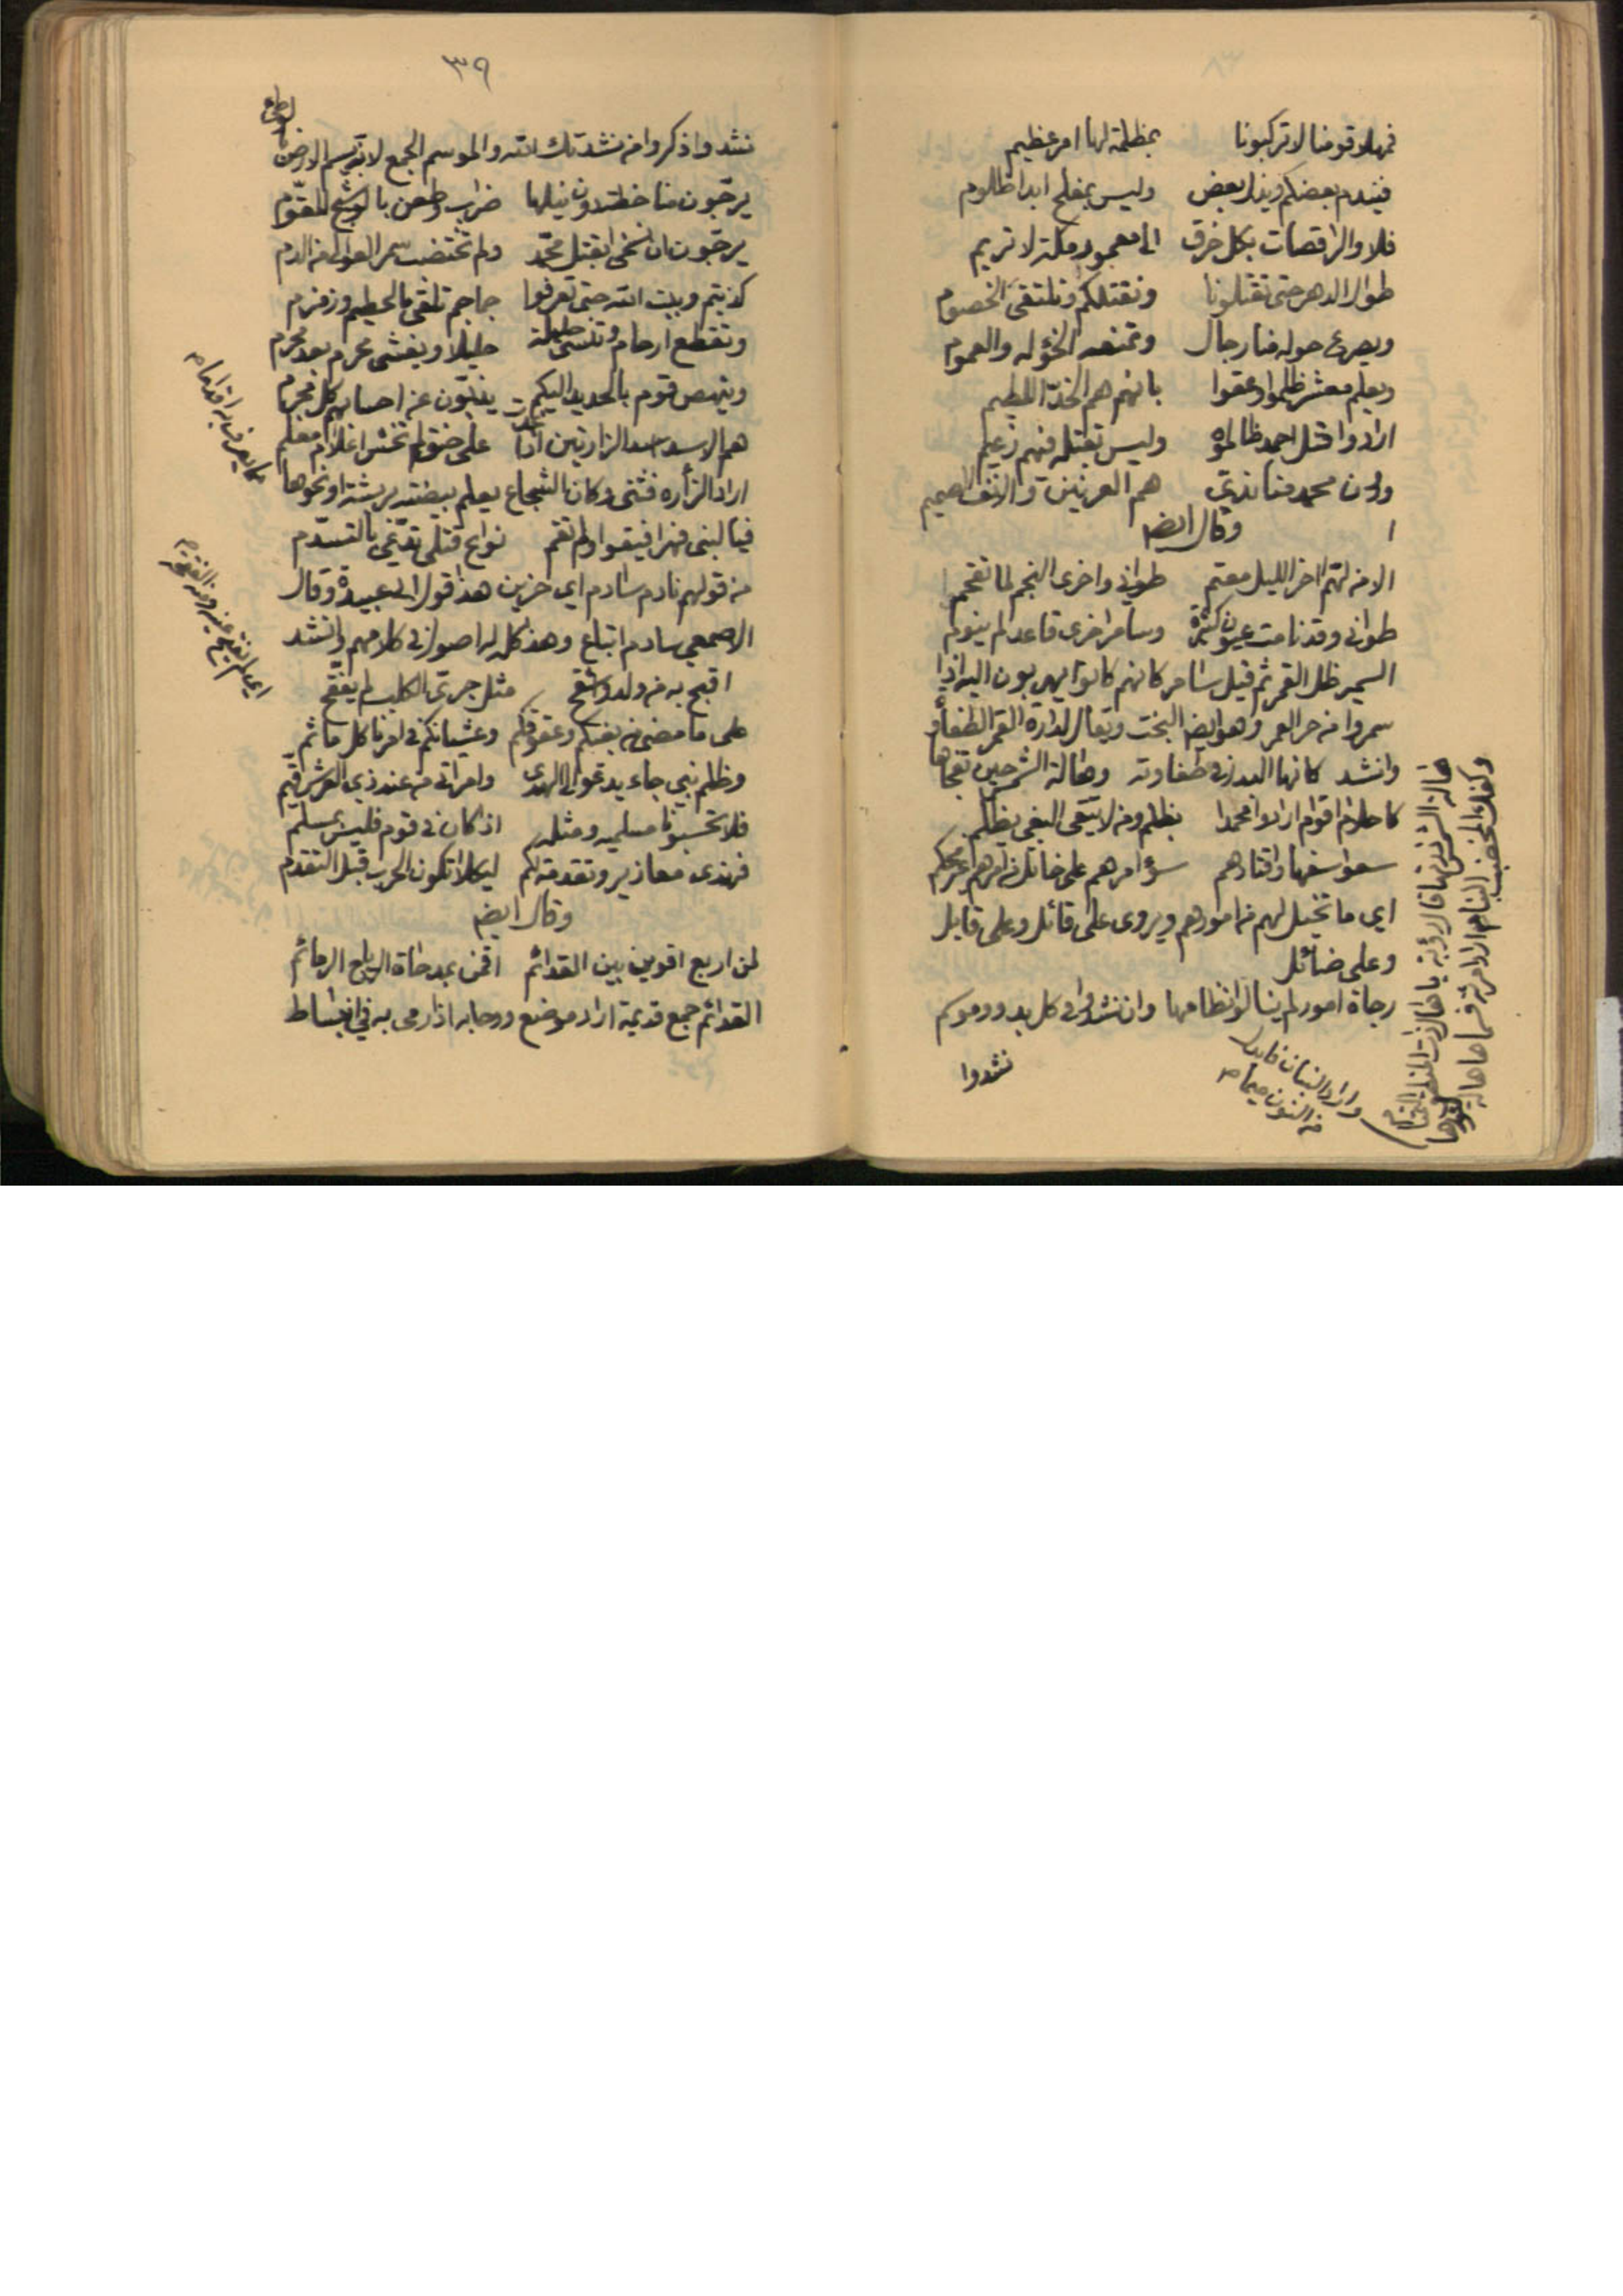 فمهلا قومنا لا تركبونا بمظلمة لها امر عظيم
فيندم بعضكم ويذل بعض وليس بمفلح ابدا ظلوم
فلا والراقصات بكل خرق الى معمور مكة لا تريم
طوال الدهر حتى تقتلونا ونقتلكم وتلتقى الخصوم
ويصرع حوله منا رجال وتمنعه الخؤله والعموم
ويعلم معشر ظلموا وعقوا بانهم هم الخد اللطيم
ارادوا قتل احمد ظالموه وليس بقتله فيهم زعيم
ودون محمد منا ندي هم العرنين والانف الصميم
وقال ايضا
الا من لهم اخر الليل معتم طواني واخرى النجم لما تقحم
طواني وقد نامت عيون كثيرة وسامر اخرى قاعد لم ينوم
السمير ظل القمر ثم قيل سامر كانهم كانوا يهربون اليه اذا
سمروا من حر القمر وهو ايضا البخت ويقال لدارة القمر الطفاوة
وانشد كانها البدر في طفاوته وهالة الشمس حين تفجاها
كاحلام اقوام ارادوا محمدا بظلم ومن لا يتقى البغي يظلم
سعوا سفها واقتادهم سؤ امرهم على خائل من امرهم غير محكم
اي ما تخيل لهم من امورهم ويروى على قائل وعلى قابل
وعلى ضائل
رجاة امور لم ينالوا نظامها وان نشدوا في كل بدو وموسم
نشدوا
واراد البنان فابدل
من النون ميما
٣٩
نشدوا ذكروا من نشدتك الله والموسم الجمع لانه يسم الارض
يرجون منا خطة دون نيلها ضراب وطعن بالوشيج المقوم
يرجون ان نسخى بقتل محمد ولم تختضب سمر العوالي من الدم
كذبتم وبيت الله حتى تعرفوا جماجم تلقى بالحطيم وزمزم
وتقطع ارحام وتنسى حليلة حليلا ويغشى محرم بعد محرم
وينهض قوم بالحديد اليكم يذبون عن احسابهم كل مجرم
هم الاسد اسد الزارتين اذا غدت على حنق لم تخش اعلام معلم
اراد الزأره فثنى وكان الشجاع يعلم بيضته بريشة او نحوها
فيا لبنى فهر افيقوا ولم تقم نوائح قتلى تدعي بالتسدم
من قولهم نادم سادم اي حزين هذا قول ابى عبيدة وقال
الاصمعي سادم اتباع وهذا كله له اصول في كلامهم وانشد
اقبح به من ولد واشقح مثل جري الكلب لم يفقح
على ما مضى من بغيكم وعقوقكم وغشيانكم في امرنا كل ماثم
وظلم نبي جاء يدعو الى الهدى وامر اتى من عند ذي العرش قيم
فلا تحسبونا مسلميه ومثله اذ كان في قوم فليس بمسلم
فهذى معاذير وتقدمة لكم لكيلا تكون الحرب قبل التقدم
وقال ايضا
لمن اربع اقوين بين القدائم اقمن بمدحاة الرياح الرمائم
القدائم جمع قديمة اراد موضع ودحا به اذا رمى به في انبساط